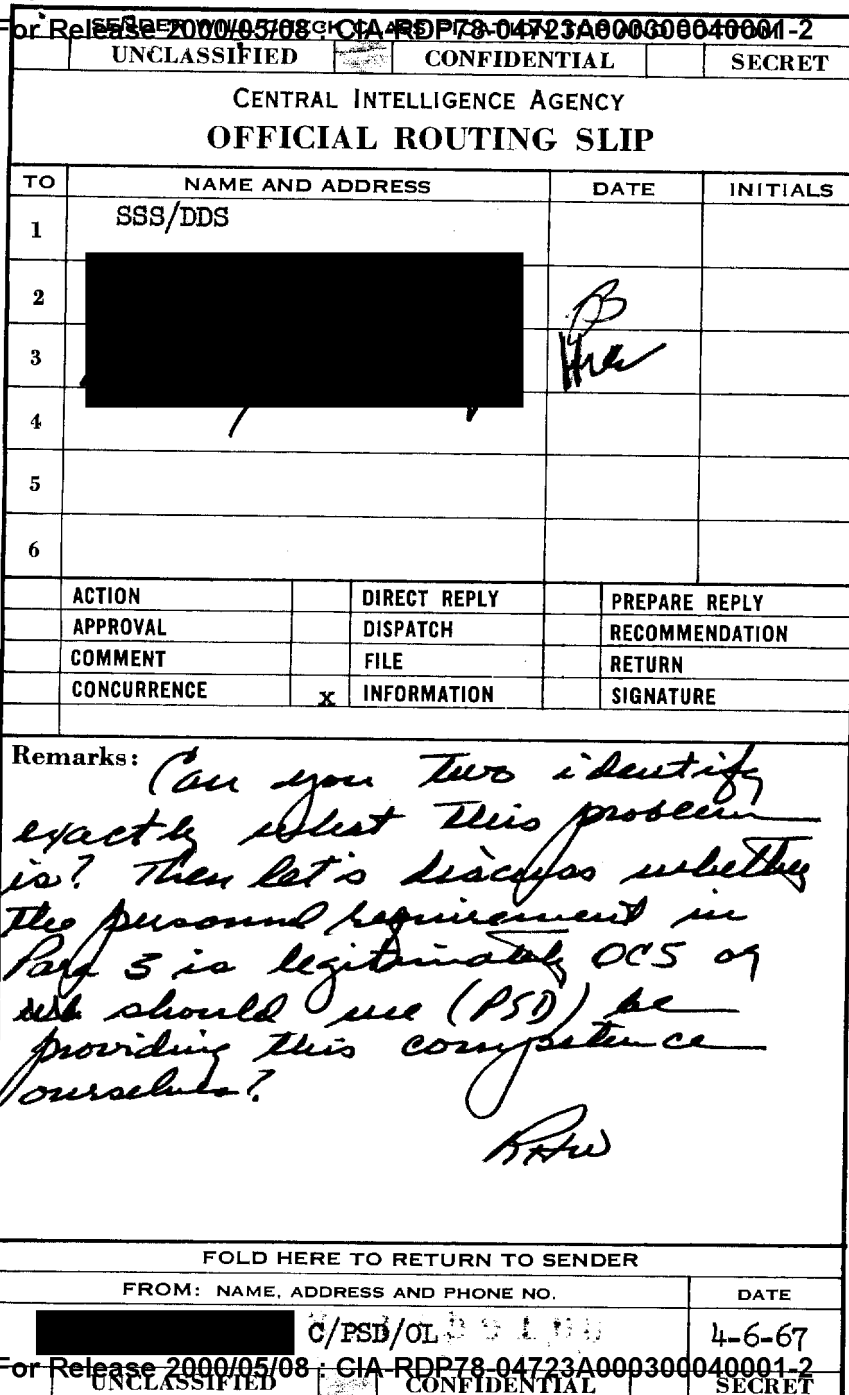 For Release 2000/05/08 : CIA-RDP78-04723A000300040001-2
UNCLASSIFIED CONFIDENTIAL SECRET
CENTRAL INTELLIGENCE AGENCY
OFFICIAL ROUTING SLIP
TO NAME AND ADDRESS DATE INITIALS
1 SSS/DDS
2
3
4
5
6
ACTION DIRECT REPLY PREPARE REPLY
APPROVAL DISPATCH RECOMMENDATION
COMMENT FILE RETURN
CONCURRENCE x INFORMATION SIGNATURE
Remarks: Can you two identify
exactly what this problem
is? Then let's discuss whether
the personnel requirement in
Para 3 is legitimately OCS or
should we (PSD) be
providing this competence
ourselves?
RHW
FOLD HERE TO RETURN TO SENDER
FROM: NAME, ADDRESS AND PHONE NO. DATE
C/PSD/OL 4-6-67
For Release 2000/05/08 : CIA-RDP78-04723A000300040001-2
UNCLASSIFIED CONFIDENTIAL SECRET